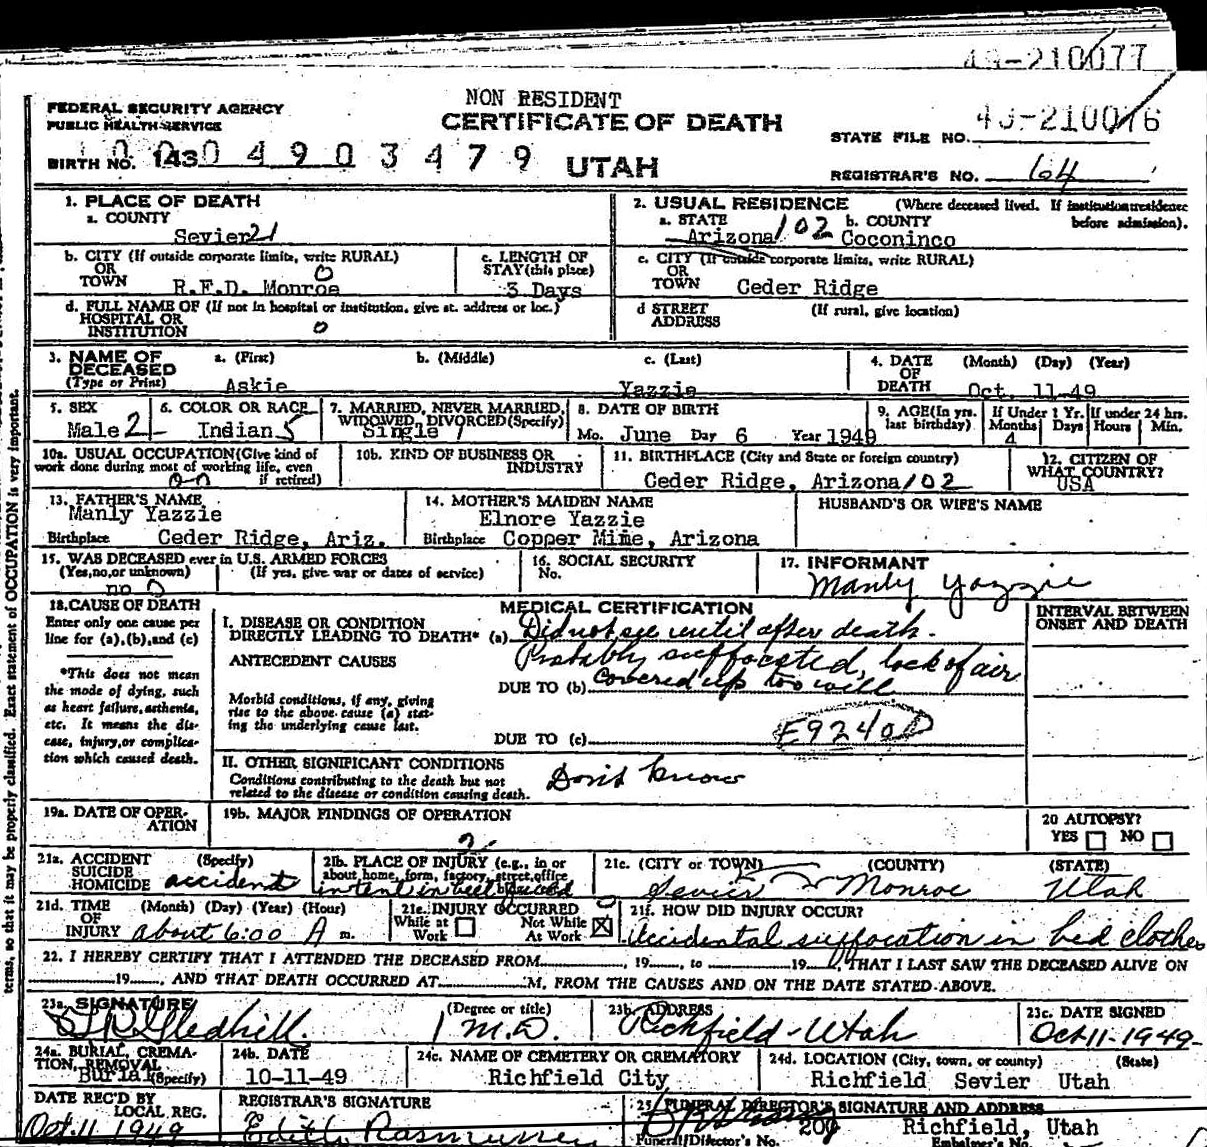 49-210077
NON RESIDENT
FEDERAL SECURITY AGENCY
PUBLIC HEALTH SERVICE
CERTIFICATE OF DEATH
STATE FILE NO. 49-210076
BIRTH NO. 143 0 4 9 0 3 4 7 9 UTAH
REGISTRAR'S NO. 64
1. PLACE OF DEATH
a. COUNTY
Sevier 21
2. USUAL RESIDENCE (Where deceased lived. If institution: residence before admission).
a. STATE b. COUNTY
Arizona 102 Coconinco
b. CITY (If outside corporate limits, write RURAL)
OR
TOWN R.F.D. Monroe
c. LENGTH OF
STAY (this place)
3 Days
c. CITY (If outside corporate limits, write RURAL)
OR
TOWN Ceder Ridge
d. FULL NAME OF (If not in hospital or institution, give st. address or loc.)
HOSPITAL OR
INSTITUTION 0
d STREET (If rural, give location)
ADDRESS
3. NAME OF DECEASED
(Type or Print)
a. (First) b. (Middle) c. (Last)
Askie Yazzie
4. DATE OF DEATH (Month) (Day) (Year)
Oct. 11-49
5. SEX
Male 2
6. COLOR OR RACE
Indian 5
7. MARRIED, NEVER MARRIED,
WIDOWED, DIVORCED (Specify)
Single 1
8. DATE OF BIRTH
Mo. June Day 6 Year 1949
9. AGE (In yrs. last birthday)
If Under 1 Yr. If under 24 hrs.
Months Days Hours Min.
4
10a. USUAL OCCUPATION (Give kind of
work done during most of working life, even
if retired)
10b. KIND OF BUSINESS OR
INDUSTRY
11. BIRTHPLACE (City and State or foreign country)
Ceder Ridge, Arizona 102
12. CITIZEN OF
WHAT COUNTRY?
USA
13. FATHER'S NAME
Manly Yazzie
Birthplace Ceder Ridge, Ariz.
14. MOTHER'S MAIDEN NAME
Elnore Yazzie
Birthplace Copper Mine, Arizona
HUSBAND'S OR WIFE'S NAME
15. WAS DECEASED ever in U.S. ARMED FORCES
(Yes, no, or unknown) (If yes, give war or dates of service)
no
16. SOCIAL SECURITY
No.
17. INFORMANT
Manly Yazzie
18. CAUSE OF DEATH
Enter only one cause per
line for (a), (b), and (c)
*This does not mean
the mode of dying, such
as heart failure, asthenia,
etc. It means the dis-
ease, injury, or complica-
tion which caused death.
MEDICAL CERTIFICATION
INTERVAL BETWEEN
ONSET AND DEATH
I. DISEASE OR CONDITION
DIRECTLY LEADING TO DEATH* (a) Did not see until after death.
ANTECEDENT CAUSES Probably suffocated, lack of air
DUE TO (b) covered up too well
Morbid conditions, if any, giving
rise to the above cause (a) stat-
ing the underlying cause last.
DUE TO (c) E9240
II. OTHER SIGNIFICANT CONDITIONS
Conditions contributing to the death but not
related to the disease or condition causing death.
Don't know
19a. DATE OF OPER-
ATION
19b. MAJOR FINDINGS OF OPERATION
20 AUTOPSY?
YES NO
21a. ACCIDENT (Specify)
SUICIDE
HOMICIDE accident
21b. PLACE OF INJURY (e.g., in or
about home, farm, factory, street, office
in tent in beet field
21c. (CITY or TOWN) (COUNTY) (STATE)
Sevier Monroe Utah
21d. TIME (Month) (Day) (Year) (Hour)
OF
INJURY about 6:00 A m.
21e. INJURY OCCURRED
While at Work Not While At Work
21f. HOW DID INJURY OCCUR?
Accidental suffocation in bed clothes
22. I HEREBY CERTIFY THAT I ATTENDED THE DECEASED FROM , 19 , to 19 , THAT I LAST SAW THE DECEASED ALIVE ON
19 , AND THAT DEATH OCCURRED AT M, FROM THE CAUSES AND ON THE DATE STATED ABOVE.
23a. SIGNATURE (Degree or title)
Gledhill M.D.
23b. ADDRESS
Richfield - Utah
23c. DATE SIGNED
Oct 11-1949
24a. BURIAL, CREMA-
TION, REMOVAL
Burial (Specify)
24b. DATE
10-11-49
24c. NAME OF CEMETERY OR CREMATORY
Richfield City
24d. LOCATION (City, town, or county) (State)
Richfield Sevier Utah
DATE REC'D BY
LOCAL REG.
Oct. 11 1949
REGISTRAR'S SIGNATURE
Edith Rasmussen
25. FUNERAL DIRECTOR'S SIGNATURE AND ADDRESS
Richfield, Utah
Funeral Director's No. 200 Embalmer's No.
terms, so that it may be properly classified. Exact statement of OCCUPATION is very important.